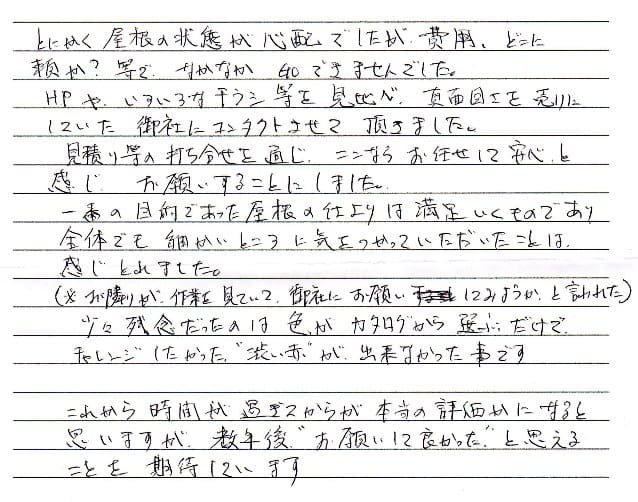 とにかく屋根の状態が心配でしたが、費用、どこに
頼か?等で、なかなか GOできませんでした。
HPや、いろいろなチラシ等を見比べ、真面目さを売りに
していた御社にコンタクトさせて頂きました。
見積り等の打ち合せを通じ、ここならお任せして安心と
感じ、お願いすることにしました。
一番の目的であった屋根の仕上りは満足いくものであり
全体でも細かいところに気をつかっていただいたことは、
感じとれました。
(※お隣りが、作業を見ていて、御社にお願いしてみようか、と言われた)
少々残念だったのは色がカタログから選ぶだけで、
チャレンジしたかった"渋い赤"が、出来なかった事です
これから時間が過ぎてからが本当の評価かになると
思いますが、数年後、"お願いして良かった"と思える
ことを期待しています